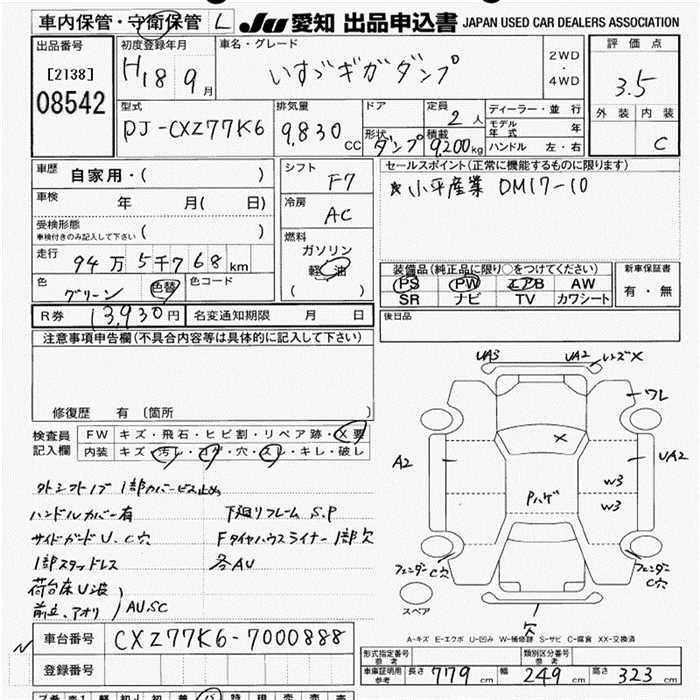 車内保管・守衛保管 L JU 愛知 出品申込書 JAPAN USED CAR DEALERS ASSOCIATION
出品番号 初度登録年月 車名・グレード 2WD・4WD 評価点
[2138] H18 9月 いすゞギガダンプ 3.5
08542 型式 排気量 ドア 定員 2人 ディーラー・並行 外装 内装
PJ-CXZ77K6 9,830CC 形状 ダンプ 積載 9,200kg モデル年式 年 C
ハンドル 左・右
車歴 自家用・( ) シフト F7 セールスポイント(正常に機能するものに限ります)
車検 年 月( 日) 冷房 AC ☆小平産業 DM17-10
受検形態 ( )
車検付きのみ記入して下さい
燃料 ガソリン 軽油 ( )
走行 94万5千768km 装備品(純正品に限り○をつけてください) 新車保証書
色 グリーン 色替 色コード PS PW エアB AW 有・無
SR ナビ TV カワシート
R券 13,930円 名変通知期限 月 日 後日品
注意事項申告欄(不具合内容等は具体的に記入して下さい)
修復歴 有 (箇所 )
検査員記入欄 FW キズ・飛石・ヒビ割・リペア跡・X要
内装 キズ・汚レ・コゲ・穴・スレ・キレ・破レ
シフトノブ 1部カバービス止め
ハンドルカバー有 下廻リフレーム S.P
サイドガードU、C穴 Fタイヤハウスライナー1部欠
1部スタッドレス 各AU
荷台床U波)
前立、アオリ)AU.SC
車台番号 CXZ77K6-7000888
登録番号
UA3 UA2 いズX
ワレ
A2 UA2
X
W3
W3
Pハゲ
フェンダーC穴 フェンダーC穴
スペア 穴
A-キズ E-エクボ U-凹み W-補修跡 S-サビ C-腐食 XX-交換済
形式指定番号 参考 類別区分番号 参考
車庫証明用参考 長さ 779cm 幅 249cm 高さ 323cm